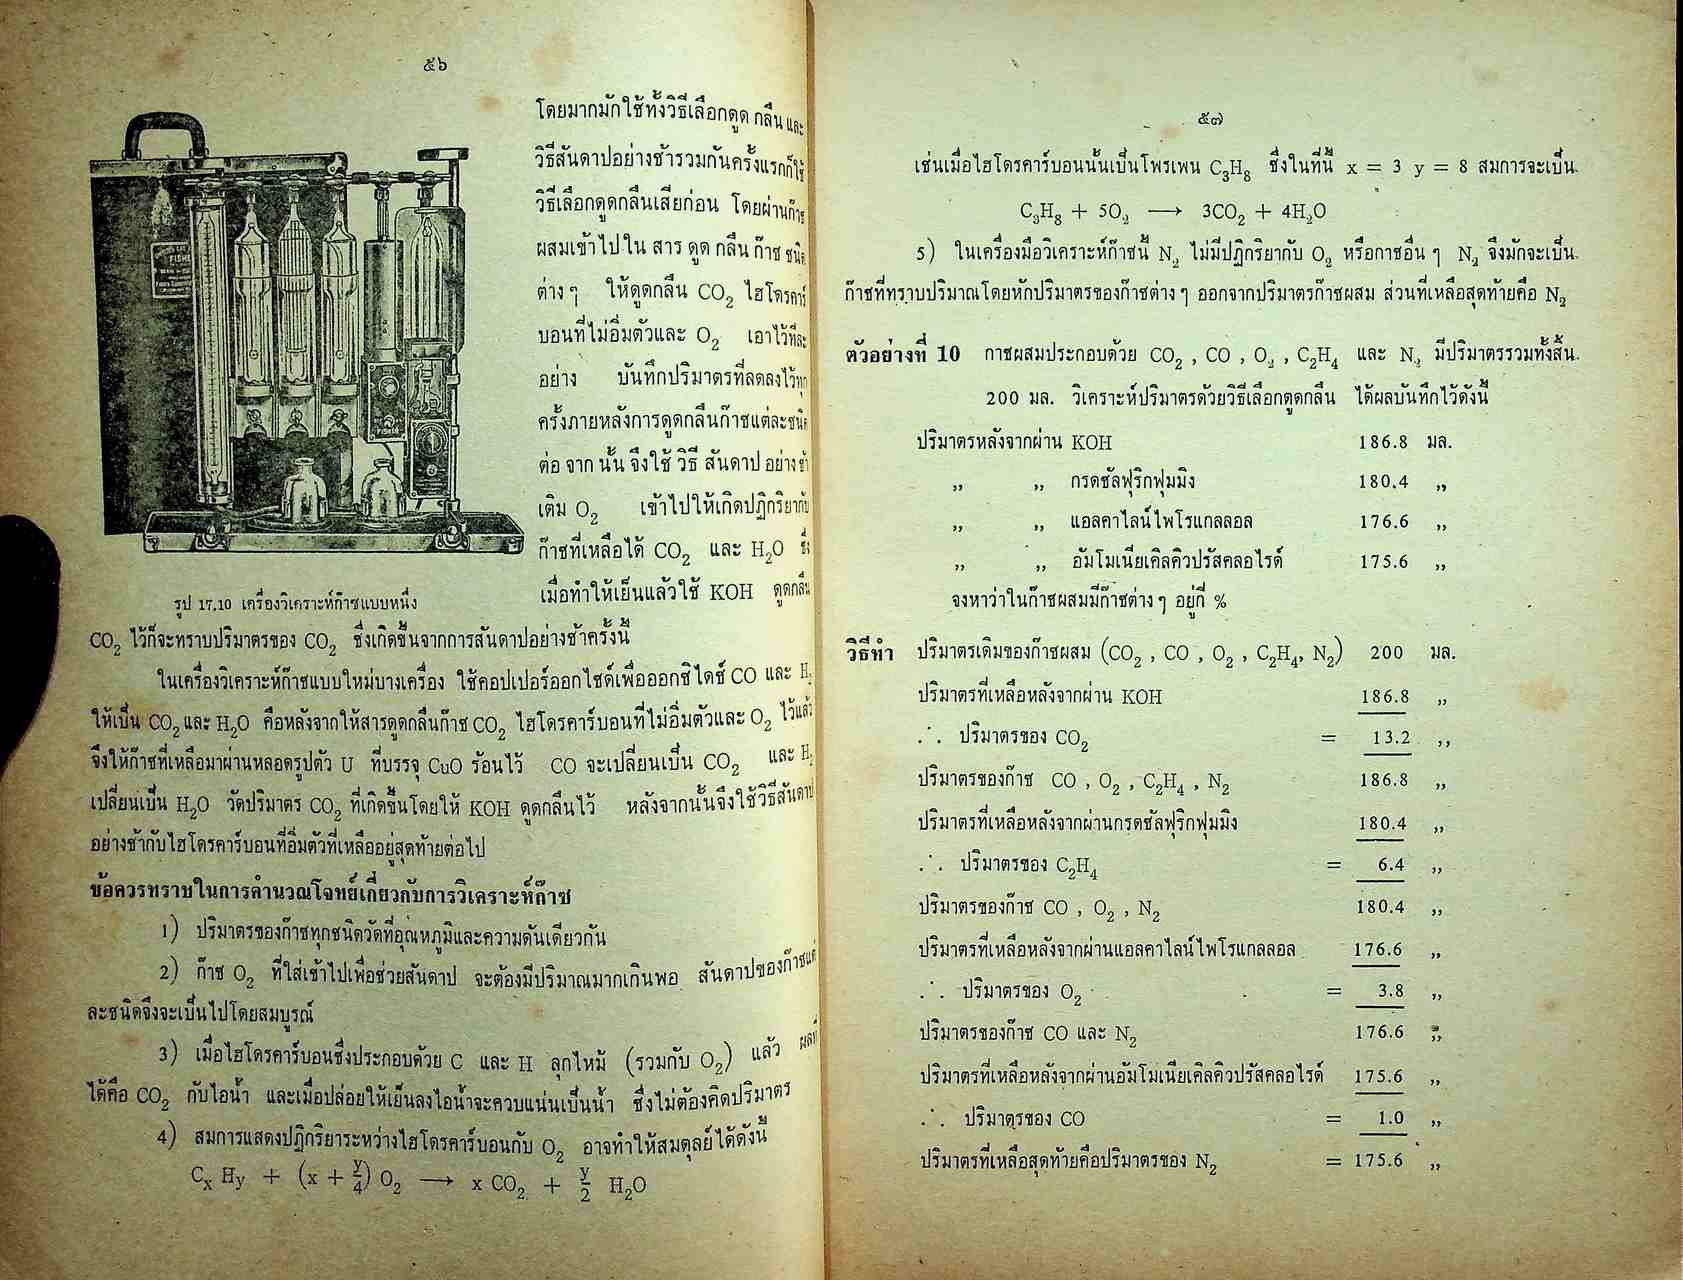 ๕๖
โดยมากมักใช้ทั้งวิธีเลือกดูด กลืน และ
วิธีสันดาปอย่างช้ารวมกันครั้งแรกก็ใช้
วิธีเลือกดูดกลืนเสียก่อน โดยผ่านก๊าซ
ผสมเข้าไปใน สาร ดูด กลืน ก๊าซ ชนิด
ต่างๆ ให้ดูดกลืน CO₂ ไฮโดรคาร์
บอนที่ไม่อิ่มตัวและ O₂ เอาไว้ทีละ
อย่าง บันทึกปริมาตรที่ลดลงไว้ทุก
ครั้งภายหลังการดูดกลืนก๊าซแต่ละชนิด
ต่อ จาก นั้น จึงใช้ วิธี สันดาป อย่าง ช้า
เติม O₂ เข้าไปให้เกิดปฏิกริยากับ
ก๊าซที่เหลือได้ CO₂ และ H₂O ซึ่ง
เมื่อทำให้เย็นแล้วใช้ KOH ดูดกลืน
FISHER
รูป 17.10 เครื่องวิเคราะห์ก๊าซแบบหนึ่ง
CO₂ ไว้ก็จะทราบปริมาตรของ CO₂ ซึ่งเกิดขึ้นจากการสันดาปอย่างช้าครั้งนี้
ในเครื่องวิเคราะห์ก๊าซแบบใหม่บางเครื่อง ใช้คอปเปอร์ออกไซด์เพื่อออกซิไดซ์ CO และ H₂
ให้เป็น CO₂และ H₂O คือหลังจากให้สารดูดกลืนก๊าซ CO₂ ไฮโดรคาร์บอนที่ไม่อิ่มตัวและ O₂ ไว้แล้ว
จึงให้ก๊าซที่เหลือมาผ่านหลอดรูปตัว U ที่บรรจุ CuO ร้อนไว้ CO จะเปลี่ยนเป็น CO₂ และ H₂
เปลี่ยนเป็น H₂O วัดปริมาตร CO₂ ที่เกิดขึ้นโดยให้ KOH ดูดกลืนไว้ หลังจากนั้นจึงใช้วิธีสันดาป
อย่างช้ากับไฮโดรคาร์บอนที่อิ่มตัวที่เหลืออยู่สุดท้ายต่อไป
ข้อควรทราบในการคำนวณโจทย์เกี่ยวกับการวิเคราะห์ก๊าซ
1) ปริมาตรของก๊าซทุกชนิดวัดที่อุณหภูมิและความดันเดียวกัน
2) ก๊าซ O₂ ที่ใส่เข้าไปเพื่อช่วยสันดาป จะต้องมีปริมาณมากเกินพอ สันดาปของก๊าซแต่
ละชนิดจึงจะเป็นไปโดยสมบูรณ์
3) เมื่อไฮโดรคาร์บอนซึ่งประกอบด้วย C และ H ลุกไหม้ (รวมกับ O₂) แล้ว ผลที่
ได้คือ CO₂ กับไอน้ำ และเมื่อปล่อยให้เย็นลงไอน้ำจะควบแน่นเป็นน้ำ ซึ่งไม่ต้องคิดปริมาตร
4) สมการแสดงปฏิกริยาระหว่างไฮโดรคาร์บอนกับ O₂ อาจทำให้สมดุลย์ได้ดังนี้
CₓHy + (x + y/4) O₂ ⟶ x CO₂ + y/2 H₂O
๕๗
เช่นเมื่อไฮโดรคาร์บอนนั้นเป็นโพรเพน C₃H₈ ซึ่งในที่นี้ x = 3 y = 8 สมการจะเป็น
C₃H₈ + 5O₂ ⟶ 3CO₂ + 4H₂O
5) ในเครื่องมือวิเคราะห์ก๊าซนี้ N₂ ไม่มีปฏิกริยากับ O₂ หรือกาซอื่นๆ N₂ จึงมักจะเป็น
ก๊าซที่ทราบปริมาณโดยหักปริมาตรของก๊าซต่างๆ ออกจากปริมาตรก๊าซผสม ส่วนที่เหลือสุดท้ายคือ N₂
ตัวอย่างที่ 10 กาซผสมประกอบด้วย CO₂ , CO , O₂ , C₂H₄ และ N₂ มีปริมาตรรวมทั้งสิ้น
200 มล. วิเคราะห์ปริมาตรด้วยวิธีเลือกดูดกลืน ได้ผลบันทึกไว้ดังนี้
ปริมาตรหลังจากผ่าน KOH 186.8 มล.
,, ,, กรดซัลฟุริกฟุมมิง 180.4 ,,
,, ,, แอลคาไลน์ไพโรแกลลอล 176.6 ,,
,, ,, อัมโมเนียเคิลคิวปรัสคลอไรด์ 175.6 ,,
จงหาว่าในก๊าซผสมมีก๊าซต่างๆ อยู่กี่ %
วิธีทำ ปริมาตรเดิมของก๊าซผสม (CO₂ , CO , O₂ , C₂H₄, N₂) 200 มล.
ปริมาตรที่เหลือหลังจากผ่าน KOH 186.8 ,,
∴ ปริมาตรของ CO₂ = 13.2 ,,
ปริมาตรของก๊าซ CO , O₂ , C₂H₄ , N₂ 186.8 ,,
ปริมาตรที่เหลือหลังจากผ่านกรดซัลฟุริกฟุมมิง 180.4 ,,
∴ ปริมาตรของ C₂H₄ = 6.4 ,,
ปริมาตรของก๊าซ CO , O₂ , N₂ 180.4 ,,
ปริมาตรที่เหลือหลังจากผ่านแอลคาไลน์ไพโรแกลลอล 176.6 ,,
∴ ปริมาตรของ O₂ = 3.8 ,,
ปริมาตรของก๊าซ CO และ N₂ 176.6 ,,
ปริมาตรที่เหลือหลังจากผ่านอัมโมเนียเคิลคิวปรัสคลอไรด์ 175.6 ,,
∴ ปริมาตรของ CO = 1.0 ,,
ปริมาตรที่เหลือสุดท้ายคือปริมาตรของ N₂ = 175.6 ,,